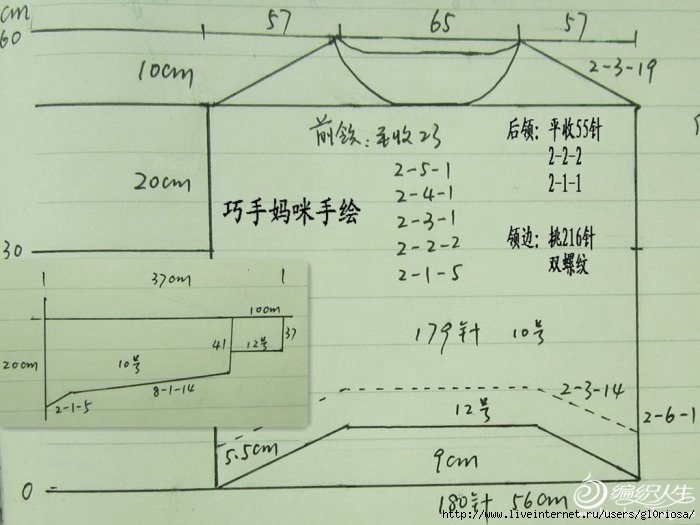 cm
60
57
65
57
10cm
2-3-19
前领：平收23
2-5-1
2-4-1
2-3-1
2-2-2
2-1-5
后领：平收55针
2-2-2
2-1-1
20cm
巧手妈咪手绘
领边：挑216针
双螺纹
30
37cm
10cm
41
12号
37
20cm
10号
8-1-14
2-1-5
179针 10号
2-3-14
12号
2-6-1
5.5cm
9cm
0
180针 56cm
编织人生
http://www.liveinternet.ru/users/gl0riosa/